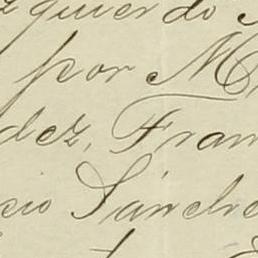 zquierdo
por M
dez, Fran
cio Sánche